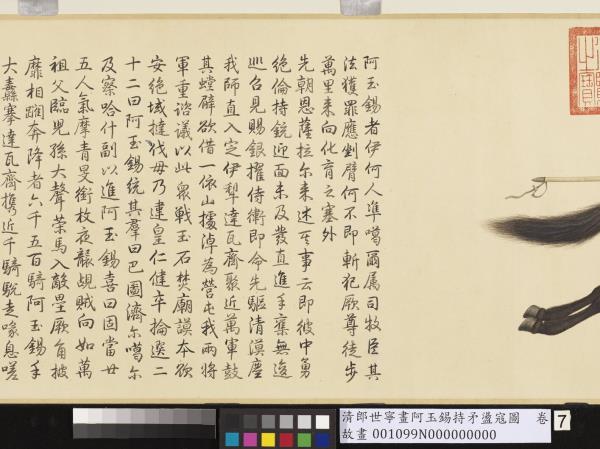 阿玉錫者伊何人準噶爾属司牧臣其
法獲罪應剉臂何不即斬犯厥尊徒步
萬里来向化育之塞外
先朝恩薩拉尔来述亓事云即彼中勇
絕倫持銃迎面未及發直進手奪無逡
巡召見賜銀擢侍衛即命先驅清漠塵
我師直入定伊犁達瓦齊聚近萬軍鼓
其螳臂欲借一依山據淖為營屯我兩將
軍重諮議以此衆戰玉石焚廟謨本欲
安絕域撻伐毋乃違皇仁健卒掄選二
十二曰阿玉錫統其羣曰巴圖濟尔噶尔
及察哈什副以進阿玉錫喜曰固當廿
五人氣摩青旻銜枚夜襲覘賊向如萬
祖父臨児孫大聲策馬入敵壘厥角披
靡相蹂奔降者六千五百騎阿玉錫手
大纛搴達瓦齊携近千騎駾走喙息嗟
清郎世寧畫阿玉錫持矛盪寇圖 卷
故畫 001099N000000000
7